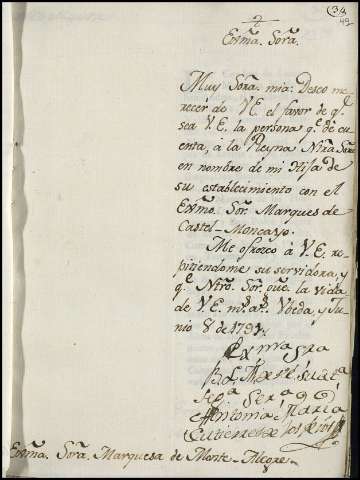 34
49
Exma. Sora.
Muy Sora. mia: Deseo me
recer de V.E. el favor de q.e
sea V.E. la persona q.e dé cu
enta, à la Reyna Ntra Sra
en nombre de mi Hija de
su establecimiento con el
Exmo. Sor. Marques de
Castel-Moncayo.
Me ofrezco à V.E. re-
pitiendome su servidora, y
q.e Ntro. Sor. gue. la vida
de V.E. ms. as. Vbeda, y Ju
nio 8 de 1791.
Exma Sra
B.L.M. de V.E. su ata
Antonia Maria
Gutierrez de los Rios
Exma. Sora. Marquesa de Monte-Alegre.